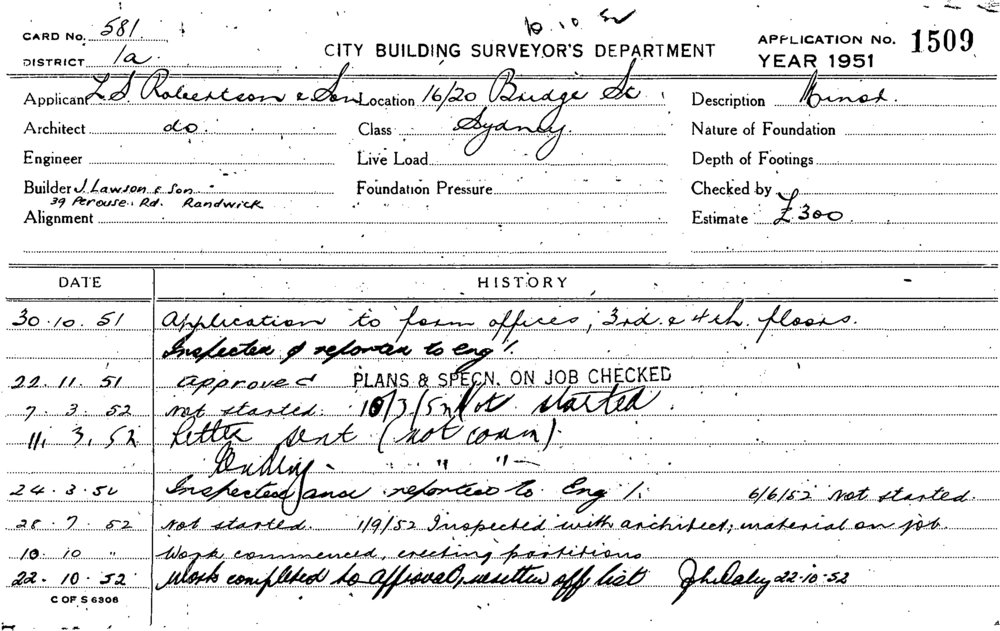 10.10.52
CARD No. 581.
DISTRICT 1a.
CITY BUILDING SURVEYOR'S DEPARTMENT
APPLICATION No. 1509
YEAR 1951
Applicant L.S. Robertson & Son Location 16/20 Bridge St. Description Minor.
Architect do. Class Sydney Nature of Foundation
Engineer Live Load Depth of Footings
Builder J. Lawson & Son Foundation Pressure Checked by
39 Perouse. Rd. Randwick
Alignment Estimate £300
DATE HISTORY
30.10.51 Application to form offices, 3rd. & 4th. floors.
Inspected & reported to Eng'.
22.11.51 Approved PLANS & SPECN. ON JOB CHECKED
7.3.52 Not started. 10/3/52 Not started.
11.3.52 Letter sent (not comm).
" "
24.3.52 Inspected and reported to Eng'. 6/6/52 Not started.
28.7.52 Not started. 1/9/52 Inspected with architect; material on job.
10.10 " Work commenced, erecting partitions
22.10.52 Work completed to approval, written off list 22.10.52
C OF S 6306